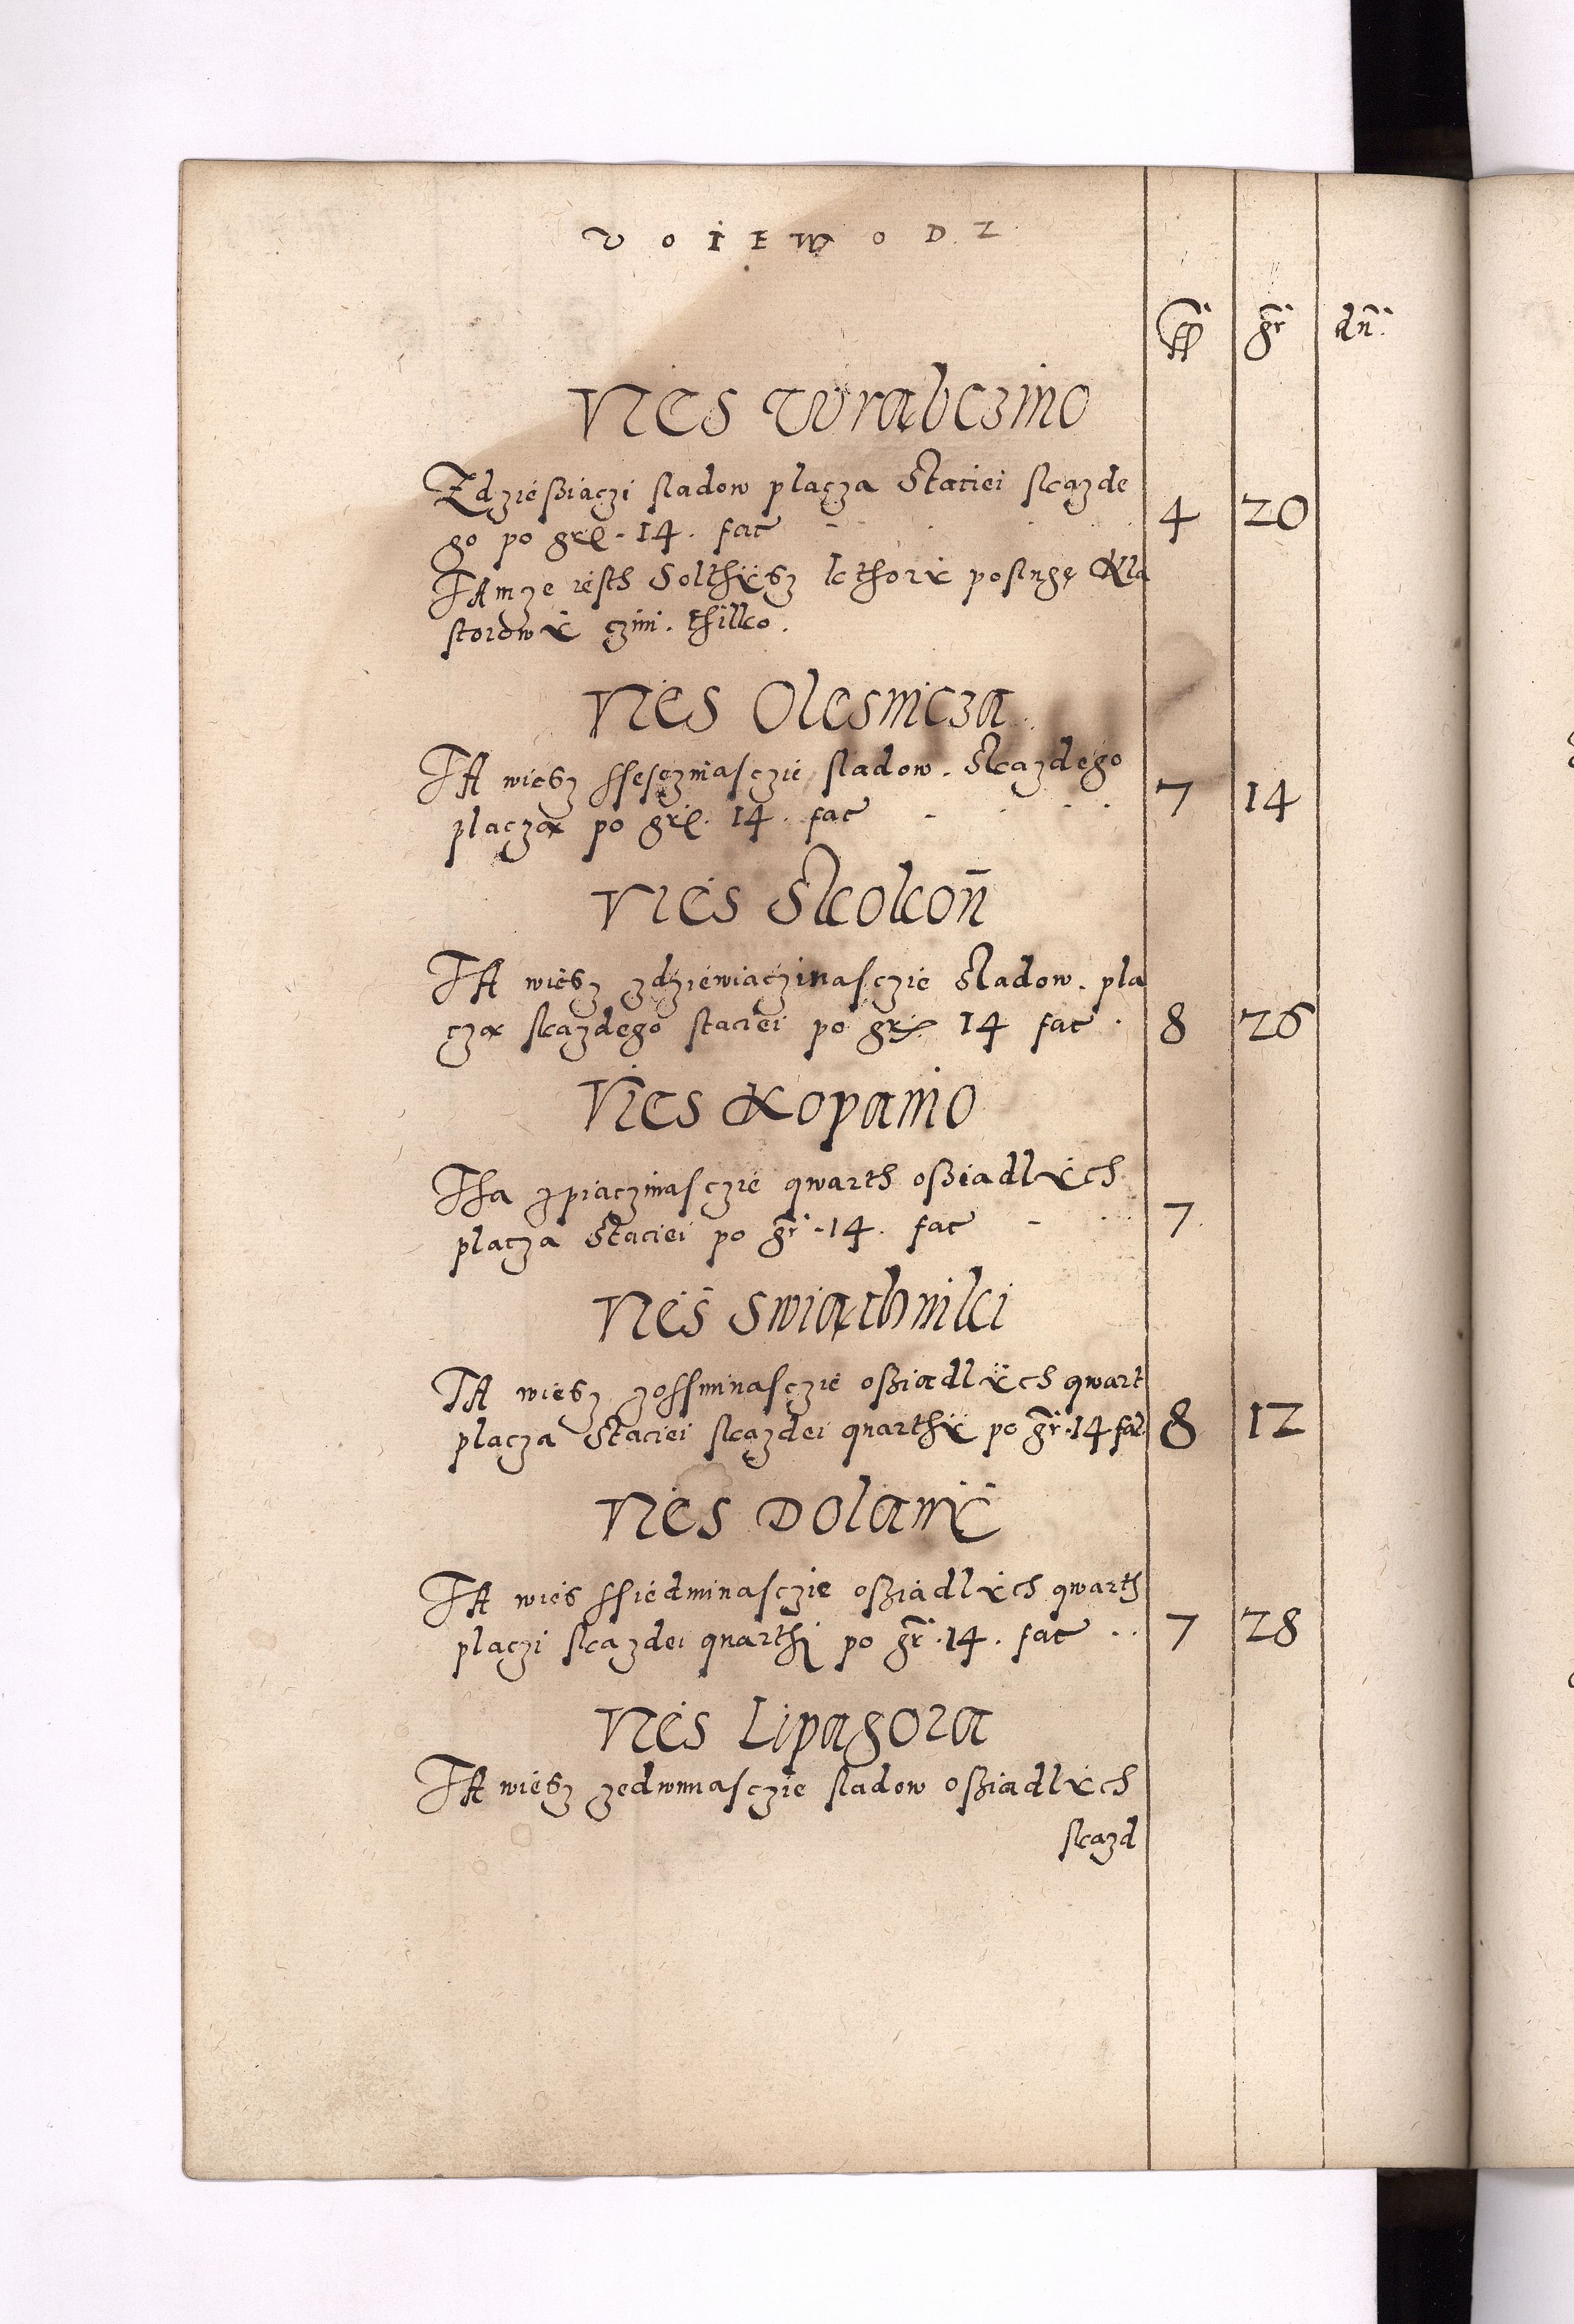 VOIEWODZ
fl gr dn.
Wies Wrabczino
Zdziesiączi sladow placza Staciei skazde
go po grl. 14. fac 4 20
TAmze iesth Solthÿsz kthorÿ poslugę Kla
storowÿ czini. thilko.
Wies Olesnicza
TA wiesz ssesczinasczie sladow. Skazdego
placza po grl. 14. fac 7 14
Wies Skokoñ
TA wiesz zdziewiaczinasczie Sladow. pla
cza skazdego staciei po gr 14 fac 8 26
Wies Kopanio
Tha zpiaczinasczie qwarth osziadlÿch
placza Staciei po gr. 14. fac 7
Wies Swiąthniki
TA wiesz zossminasczie osziadlÿch qwart
placza Staciei skazdei qwarthÿ po gr. 14 fac 8 12
Wies Dolanÿ
TA wies ssiedminasczie osziadlÿch qwarth
placzi skazdei quarthi po gr. 14. fac 7 28
Wies Lipagora
TA wiesz zedwunasczie sladow osziadlÿch
skazd